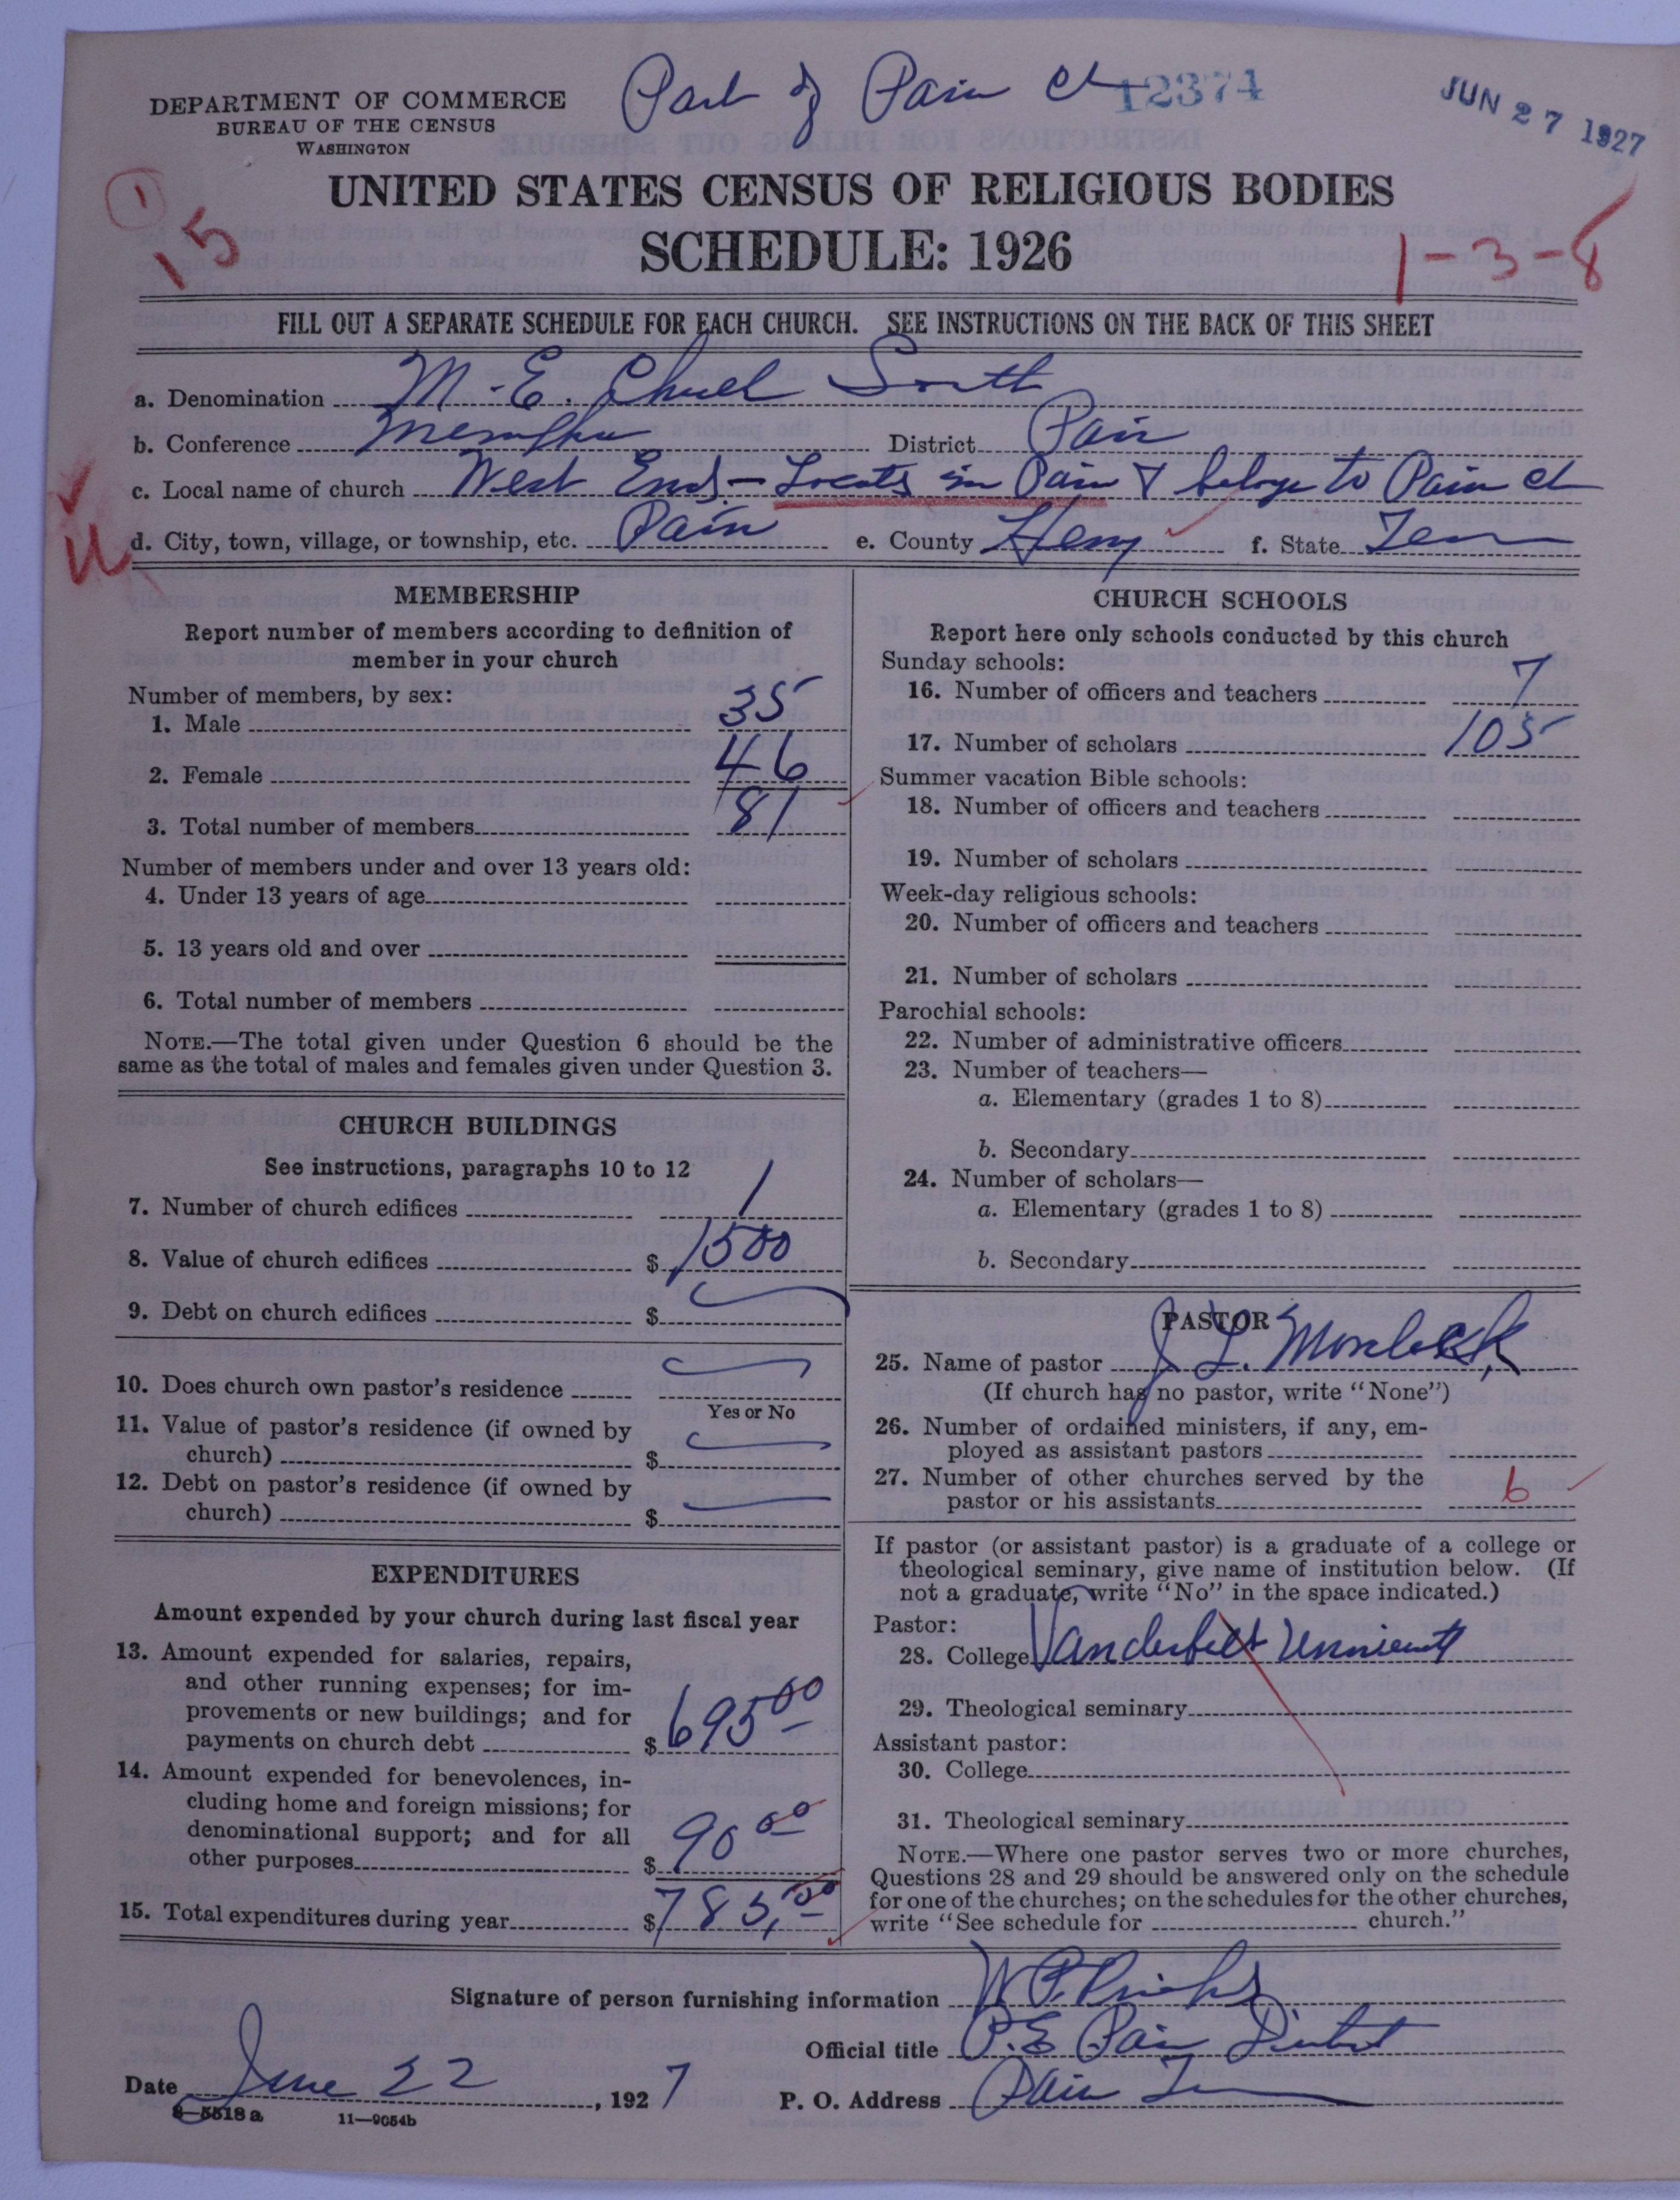 Part of Paris ch 12374
JUN 27 1927
DEPARTMENT OF COMMERCE
BUREAU OF THE CENSUS
WASHINGTON
1
15
UNITED STATES CENSUS OF RELIGIOUS BODIES
SCHEDULE: 1926
1-3-8
FILL OUT A SEPARATE SCHEDULE FOR EACH CHURCH. SEE INSTRUCTIONS ON THE BACK OF THIS SHEET
a. Denomination M. E. Church South
b. Conference Memphis District Paris
c. Local name of church West End - Locats in Paris & belongs to Paris ch
d. City, town, village, or township, etc. Paris e. County Henry f. State Tenn
MEMBERSHIP
Report number of members according to definition of
member in your church
Number of members, by sex:
1. Male 35
2. Female 46
3. Total number of members 81
Number of members under and over 13 years old:
4. Under 13 years of age
5. 13 years old and over
6. Total number of members
NOTE.—The total given under Question 6 should be the
same as the total of males and females given under Question 3.
CHURCH BUILDINGS
See instructions, paragraphs 10 to 12
7. Number of church edifices 1
8. Value of church edifices $ 1500
9. Debt on church edifices $
10. Does church own pastor's residence
Yes or No
11. Value of pastor's residence (if owned by
church) $
12. Debt on pastor's residence (if owned by
church) $
EXPENDITURES
Amount expended by your church during last fiscal year
13. Amount expended for salaries, repairs,
and other running expenses; for im-
provements or new buildings; and for
payments on church debt $ 695 00
14. Amount expended for benevolences, in-
cluding home and foreign missions; for
denominational support; and for all
other purposes $ 90 00
15. Total expenditures during year $ 785,00
CHURCH SCHOOLS
Report here only schools conducted by this church
Sunday schools:
16. Number of officers and teachers 7
17. Number of scholars 105
Summer vacation Bible schools:
18. Number of officers and teachers
19. Number of scholars
Week-day religious schools:
20. Number of officers and teachers
21. Number of scholars
Parochial schools:
22. Number of administrative officers
23. Number of teachers—
a. Elementary (grades 1 to 8)
b. Secondary
24. Number of scholars—
a. Elementary (grades 1 to 8)
b. Secondary
PASTOR
25. Name of pastor J. L.
(If church has no pastor, write "None")
26. Number of ordained ministers, if any, em-
ployed as assistant pastors
27. Number of other churches served by the
pastor or his assistants 6
If pastor (or assistant pastor) is a graduate of a college or
theological seminary, give name of institution below. (If
not a graduate, write "No" in the space indicated.)
Pastor:
28. College Vanderbilt University
29. Theological seminary
Assistant pastor:
30. College
31. Theological seminary
NOTE.—Where one pastor serves two or more churches,
Questions 28 and 29 should be answered only on the schedule
for one of the churches; on the schedules for the other churches,
write "See schedule for church."
Signature of person furnishing information W. P.
Official title P. E. Paris District
Date June 22, 1927 P. O. Address Paris Tenn
8—5518a 11—9054b